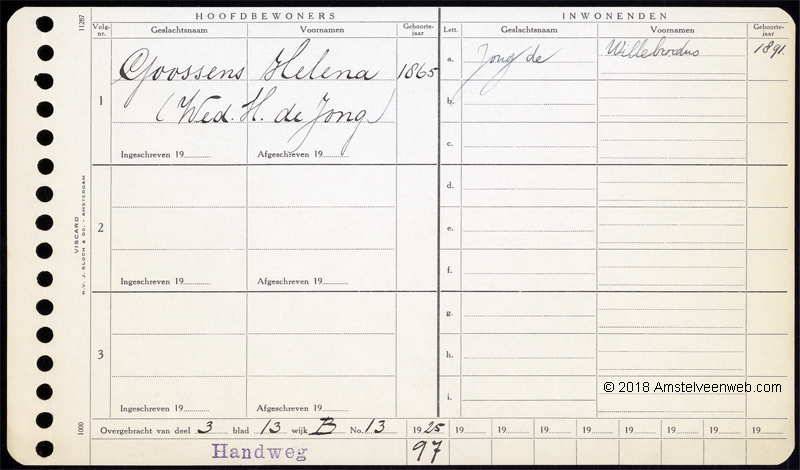 HOOFDBEWONERS
INWONENDEN
11287
Volg-nr.
Geslachtsnaam
Voornamen
Geboorte-jaar
Lett.
Geslachtsnaam
Voornamen
Geboorte-jaar
1
Goossens Helena 1865
(Wed. H. de Jong)
Ingeschreven 19
Afgeschreven 19
a. Jong de Willebrordus 1891.
b.
c.
2
Ingeschreven 19
Afgeschreven 19
d.
e.
f.
3
Ingeschreven 19
Afgeschreven 19
g.
h.
i.
VISCARD
N.V. J. BLOCH & CO. - AMSTERDAM
© 2018 Amstelveenweb.com
1000
Overgebracht van deel 3 blad 13 wijk B No. 13 1925 19 19 19 19 19 19 19 19
Handweg 97